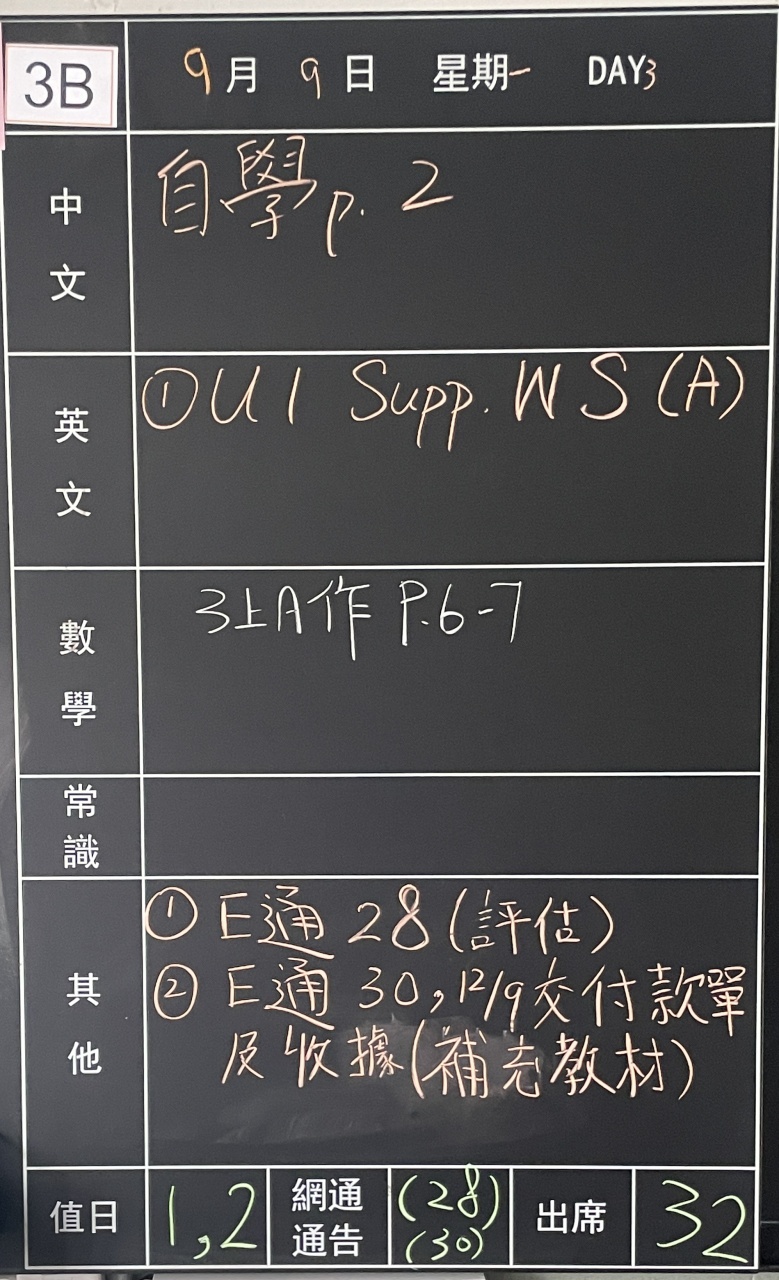 3B 9月9日 星期一 DAY3
中文 自學 p. 2
英文 ①U1 Supp. WS (A)
數學 3上A作 P.6-7
常識
其他 ① E通 28 (評估)
② E通 30, 12/9交付款單
及收據(補充教材)
值日 1,2 網通通告 (28) (30) 出席 32